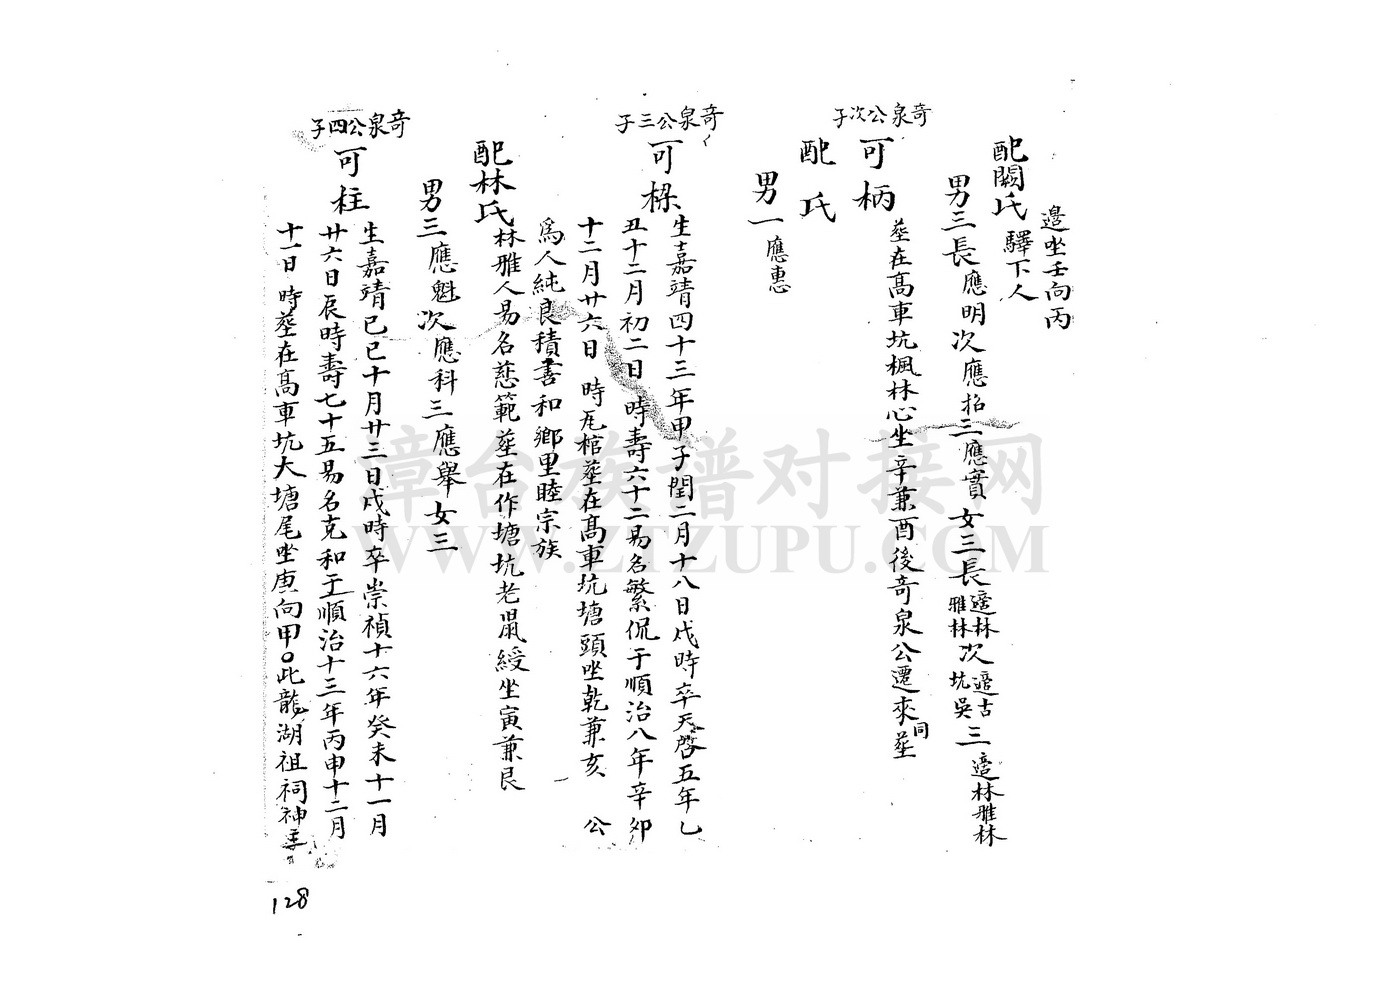 邉坐壬向丙
配闕氏 驛下人
男三長應明次應招三應賓女三長適林雅林次適古坑吳三適林雅林
奇泉公次子
可柄 塟在髙車坑楓林心坐辛兼酉後奇泉公遷來同塟
配 氏
男一應惠
奇泉公三子
可樑 生嘉靖四十三年甲子閏二月十八日戌時卒天啓五年乙
丑十二月初二日 時壽六十二易名繁侃于順治八年辛卯
十二月廿六日 時瓦棺塟在髙車坑塘頭坐乾兼亥 公
爲人純良積善和鄉里睦宗族
配林氏 林雅人易名慈範塟在作塘坑老鼠綬坐寅兼艮
男三應魁次應科三應舉女三
奇泉公四子
可柱 生嘉靖己巳十月廿三日戌時卒崇禎十六年癸未十一月
廿六日辰時壽七十五易名克和于順治十三年丙申十二月
十一日 時塟在髙車坑大塘尾坐庚向甲○此龍湖祖祠神主
128
章台族谱对接网
WWW.ZTZUPU.COM